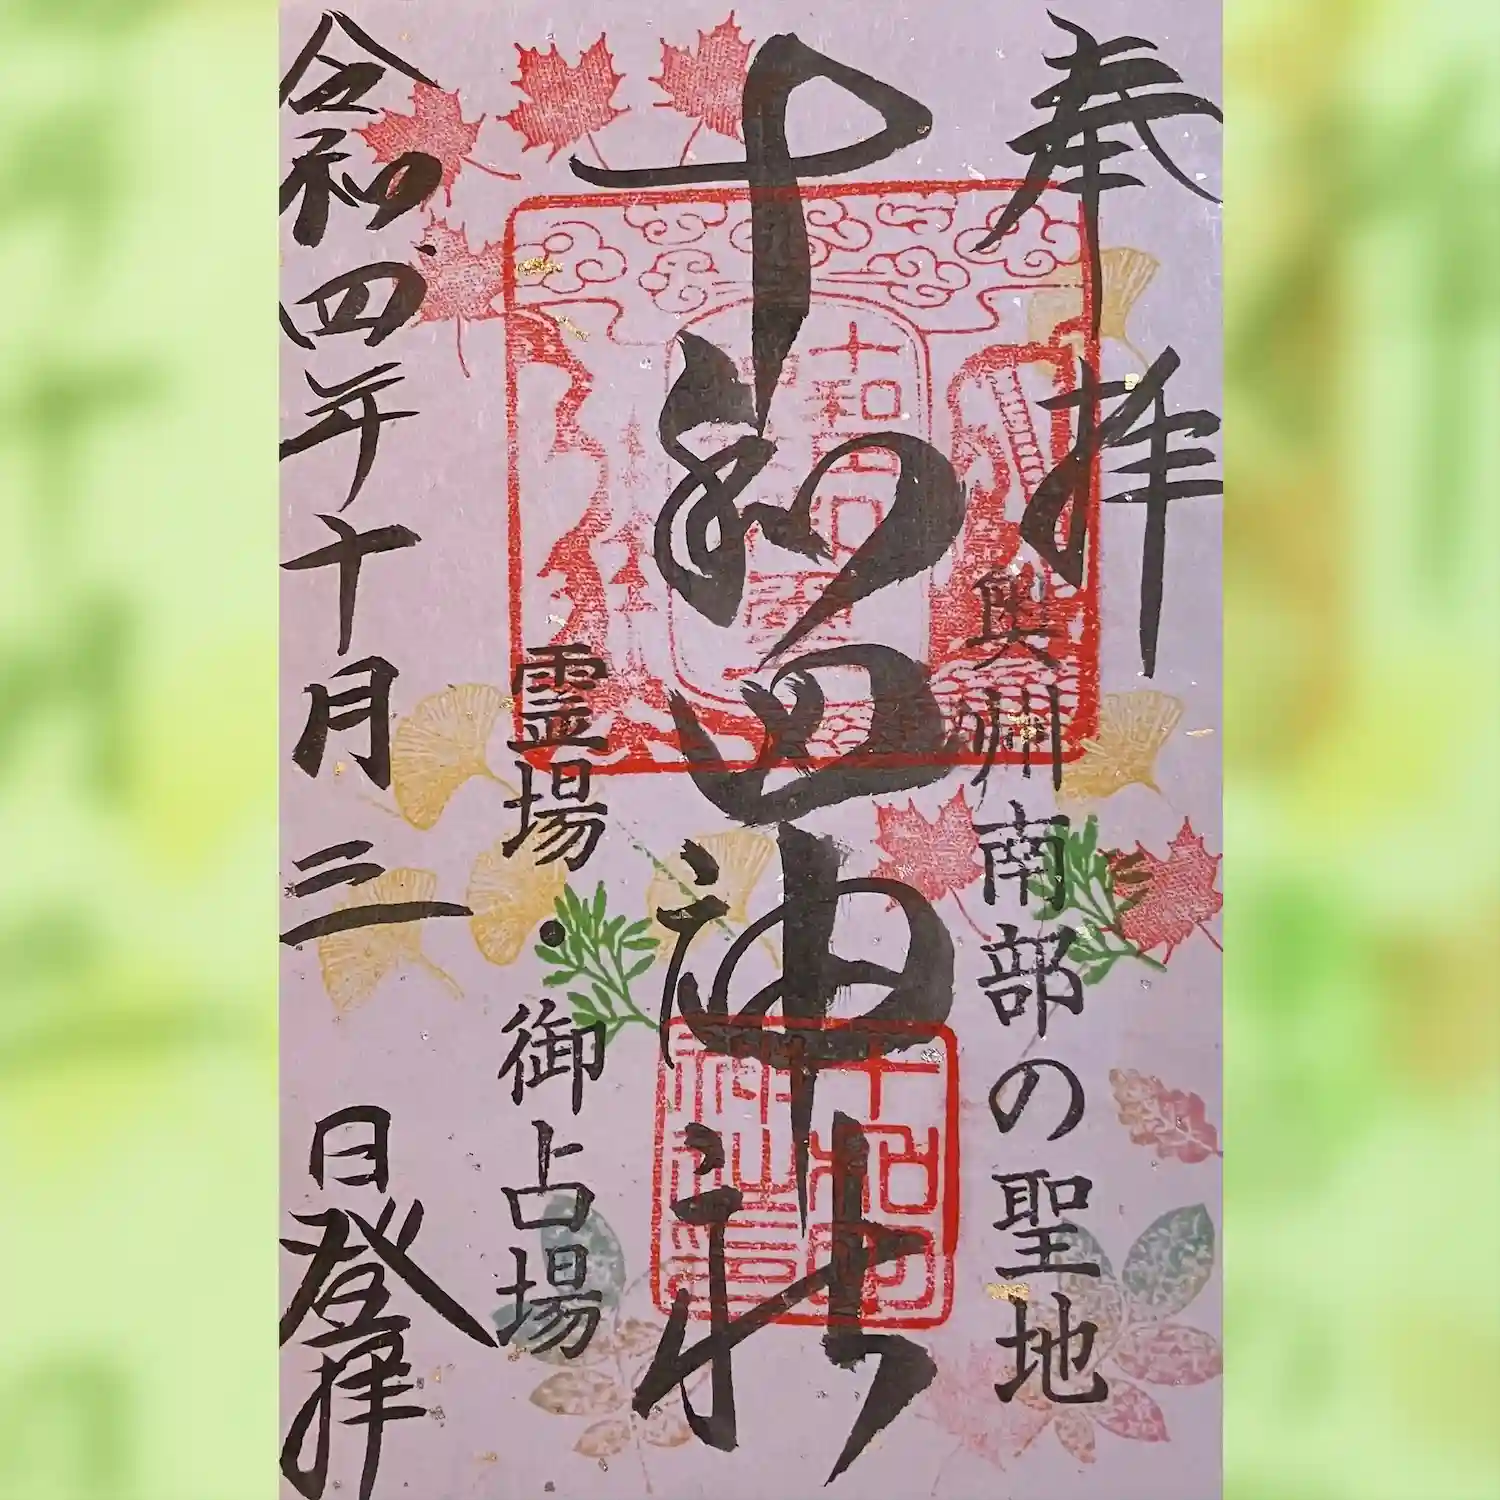 奉拝
奥州南部の聖地
十和田神社
十和田
神社
霊場・御占場
令和四年十月三日登拝